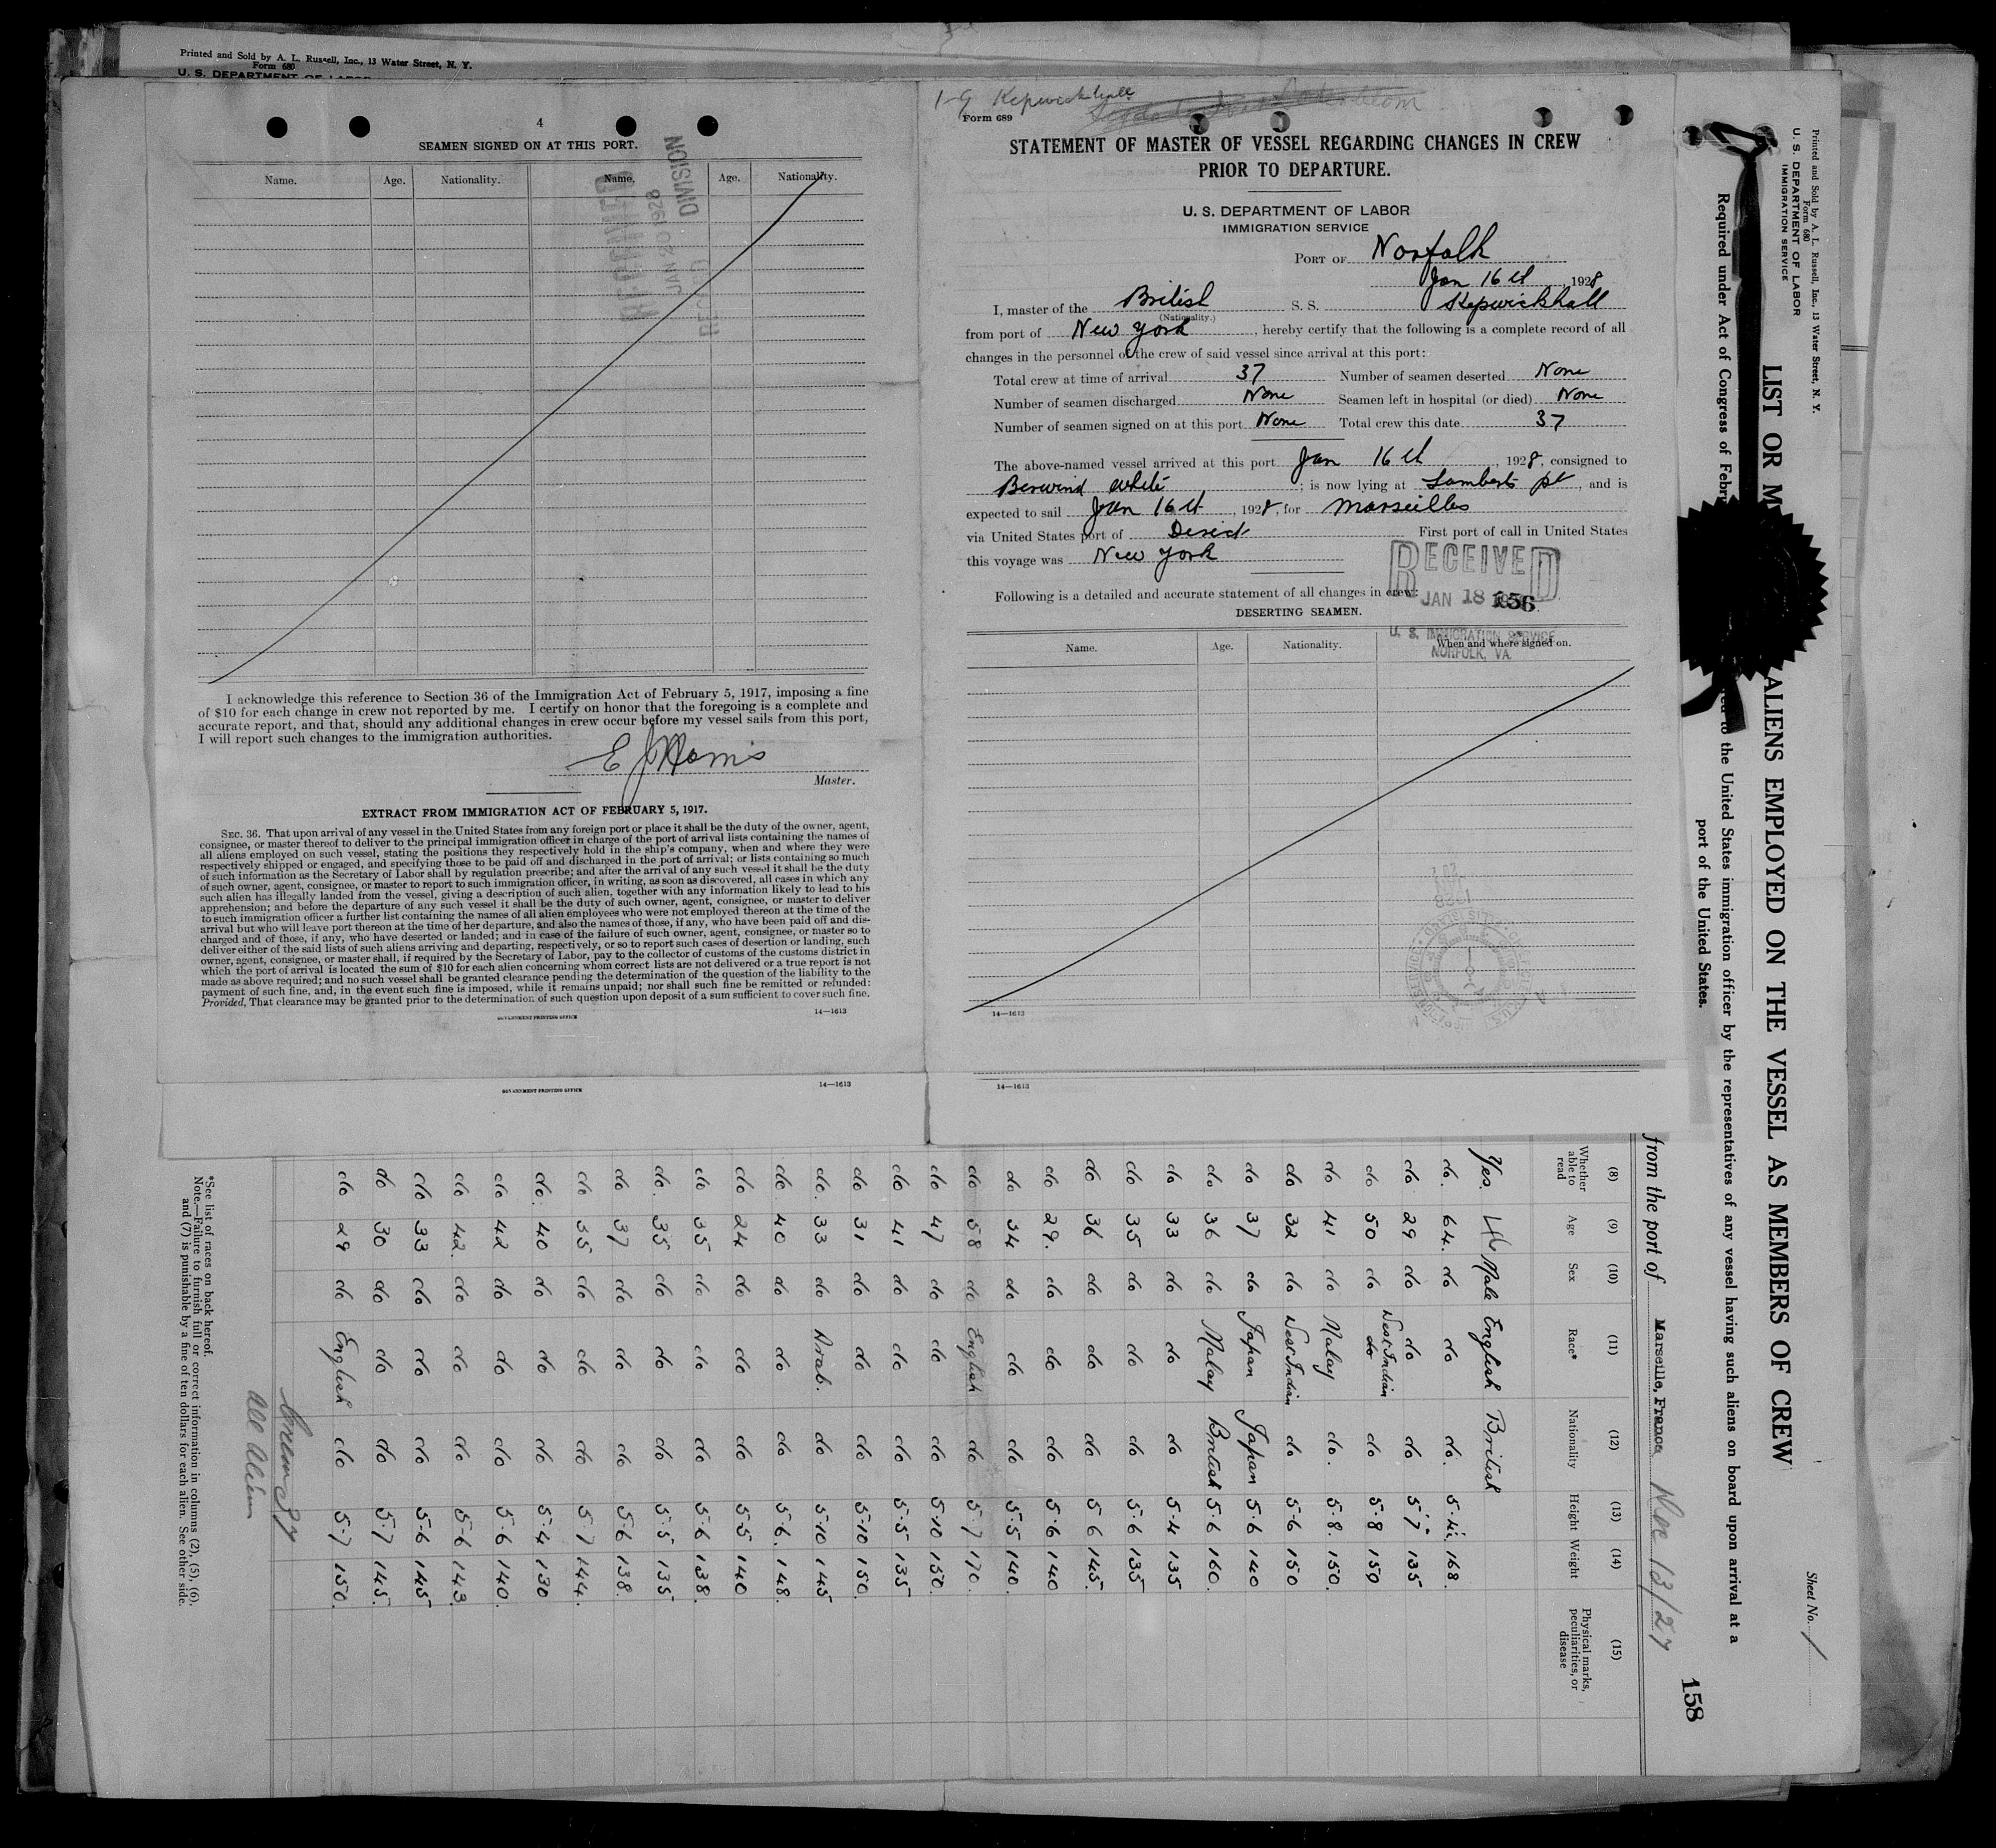 Printed and Sold by A. L. Russell, Inc., 13 Water Street, N. Y.
Form 680
U. S. DEPARTMENT OF LABOR
4
SEAMEN SIGNED ON AT THIS PORT.
Name. Age. Nationality. Name. Age. Nationality.
DIVISION
JAN 20 1928
I acknowledge this reference to Section 36 of the Immigration Act of February 5, 1917, imposing a fine
of $10 for each change in crew not reported by me. I certify on honor that the foregoing is a complete and
accurate report, and that, should any additional changes in crew occur before my vessel sails from this port,
I will report such changes to the immigration authorities.
E J Morris
Master.
EXTRACT FROM IMMIGRATION ACT OF FEBRUARY 5, 1917.
SEC. 36. That upon arrival of any vessel in the United States from any foreign port or place it shall be the duty of the owner, agent,
consignee, or master thereof to deliver to the principal immigration officer in charge of the port of arrival lists containing the names of
all aliens employed on such vessel, stating the positions they respectively hold in the ship's company, when and where they were
respectively shipped or engaged, and specifying those to be paid off and discharged in the port of arrival; or lists containing so much
of such information as the Secretary of Labor shall by regulation prescribe; and after the arrival of any such vessel it shall be the duty
of such owner, agent, consignee, or master to report to such immigration officer, in writing, as soon as discovered, all cases in which any
such alien has illegally landed from the vessel, giving a description of such alien, together with any information likely to lead to his
apprehension; and before the departure of any such vessel it shall be the duty of such owner, agent, consignee, or master to deliver
to such immigration officer a further list containing the names of all alien employees who were not employed thereon at the time of the
arrival but who will leave port thereon at the time of her departure, and also the names of those, if any, who have been paid off and dis-
charged and of those, if any, who have deserted or landed; and in case of the failure of such owner, agent, consignee, or master so to
deliver either of the said lists of such aliens arriving and departing, respectively, or so to report such cases of desertion or landing, such
owner, agent, consignee, or master shall, if required by the Secretary of Labor, pay to the collector of customs of the customs district in
which the port of arrival is located the sum of $10 for each alien concerning whom correct lists are not delivered or a true report is not
made as above required; and no such vessel shall be granted clearance pending the determination of the question of the liability to the
payment of such fine, and, in the event such fine is imposed, while it remains unpaid; nor shall such fine be remitted or refunded:
Provided, That clearance may be granted prior to the determination of such question upon deposit of a sum sufficient to cover such fine.
GOVERNMENT PRINTING OFFICE 14—1613
GOVERNMENT PRINTING OFFICE 14—1613
1-9 Kepwickhall
Form 689
STATEMENT OF MASTER OF VESSEL REGARDING CHANGES IN CREW
PRIOR TO DEPARTURE.
U. S. DEPARTMENT OF LABOR
IMMIGRATION SERVICE
PORT OF Norfolk
Jan 16th 1928
I, master of the British S. S. Kepwickhall
(Nationality.)
from port of New York, hereby certify that the following is a complete record of all
changes in the personnel of the crew of said vessel since arrival at this port:
Total crew at time of arrival 37 Number of seamen deserted None
Number of seamen discharged None Seamen left in hospital (or died) None
Number of seamen signed on at this port None Total crew this date 37
The above-named vessel arrived at this port Jan 16th, 1928, consigned to
Berwind White; is now lying at Lamberts pt, and is
expected to sail Jan 16th, 1928, for Marseilles
via United States port of Direct First port of call in United States
this voyage was New York
RECEIVED
JAN 18
156
U. S. IMMIGRATION SERVICE
NORFOLK, VA.
Following is a detailed and accurate statement of all changes in crew:
DESERTING SEAMEN.
Name. Age. Nationality. When and where signed on.
14—1613
14—1613
Printed and Sold by A. L. Russell, Inc., 13 Water Street, N. Y.
Form 680
U. S. DEPARTMENT OF LABOR
IMMIGRATION SERVICE
LIST OR M ALIENS EMPLOYED ON THE VESSEL AS MEMBERS OF CREW
Sheet No. 1
Required under Act of Congress of Febru ed to the United States immigration officer by the representatives of any vessel having such aliens on board upon arrival at a
port of the United States.
158
from the port of Marseille, France Dec 13/27
(8) (9) (10) (11) (12) (13) (14) (15)
Whether able to read Age Sex Race* Nationality Height Weight Physical marks, peculiarities, or disease
Yes. 46 Male English British
do. 64. do do do. 5.4½ 168.
do. 29 do do do 5.7 135
do 50 do West Indian do 5.8 150
do 41 do Malay do. 5.8. 150.
do 32 do West Indian do 5-6 150
do 37 do Japan Japan 5.6 140
do 36 do Malay British 5.6 160.
do 33 do do do 5.4 135
do 35 do do do 5.6 135
do 36 do do do 5 6 145.
do 29. do do do 5.6 140
do 34 do do do 5.5 140.
do 58 do English do 5.7 170.
do 47 do do do 5.10 150.
do 41 do do do 5.5 135
do 31 do do do 5.10 150.
do. 33 do Arab. do 5.10 145
do 40 do do do 5.6. 148.
do 24 do do do 5.5 140
do 35 do do do 5.6 138.
do. 35 do do do 5.5 135
do 37 do do do 5.6 138.
do 35 do do do 5.7 144.
do. 40 do do do 5.4 130
do 42 do do do 5.6 140.
do 42. do do do 5.6 143.
do 33 do do do 5-6 145
do 30 do do do 5.7 145.
do 29 do English do 5.7 150.
Crew 37
All Alien
*See list of races on back hereof.
Note.—Failure to furnish full or correct information in columns (2), (5), (6),
and (7) is punishable by a fine of ten dollars for each alien. See other side.